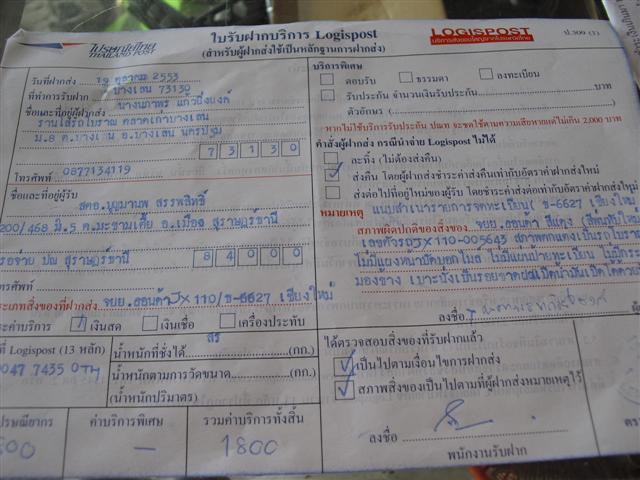 ไปรษณีย์ไทย
THAILAND POST
ใบรับฝากบริการ Logispost
(สำหรับผู้ฝากส่งใช้เป็นหลักฐานการฝากส่ง)
LOGISPOST
ป.309 (1)
วันที่ฝากส่ง 19 ตุลาคม 2553
ที่ทำการรับฝาก บางเลน 73130
ชื่อและที่อยู่ผู้ฝากส่ง
ม.8 ต.บางเลน อ.บางเลน นครปฐม
73130
โทรศัพท์ 0877134119
ชื่อและที่อยู่ผู้รับ
200/468 ต.มะขามเตี้ย อ.เมือง สุราษฎร์ธานี
รอจ่าย ปณ สุราษฎร์ธานี
84000
โทรศัพท์
ประเภทสิ่งของที่ฝากส่ง จยย.ฮอนด้า JX 110/ข-6627 เชียงใหม่
ชำระค่าบริการ เงินสด เงินเชื่อ เครื่องประทับ
ที่ Logispost (13 หลัก)
0047 7435 0TH
น้ำหนักที่ชั่งได้ (กก.)
น้ำหนักตามการวัดขนาด (กก.)
(น้ำหนักปริมาตร)
ค่าบริการพิเศษ
–
รวมค่าบริการทั้งสิ้น
1800
บริการพิเศษ
ตอบรับ ธรรมดา ลงทะเบียน
รับประกัน จำนวนเงินรับประกัน บาท
ตัวอักษร (
หากไม่ใช้บริการรับประกัน ปณท จะชดใช้ตามความเสียหายแต่ไม่เกิน 2,000 บาท
คำสั่งผู้ฝากส่ง กรณีนำจ่าย Logispost ไม่ได้
ละทิ้ง (ไม่ต้องส่งคืน)
ส่งคืน โดยผู้ฝากส่งชำระค่าส่งคืนเท่ากับอัตราค่าฝากส่งใหม่
ส่งต่อไปที่อยู่ใหม่ของผู้รับ โดยชำระค่าส่งต่อเท่ากับอัตราค่าฝากส่งใหม่
หมายเหตุ แนบสำเนารายการจดทะเบียน ข-6627 เชียงใหม่
สภาพผิดปกติของสิ่งของ จยย.ฮอนด้า สีแดง
เลขตัวรถ JX 110-005643
ลงชื่อ
ได้ตรวจสอบสิ่งของที่รับฝากแล้ว
เป็นไปตามเงื่อนไขการฝากส่ง
สภาพสิ่งของเป็นไปตามที่ผู้ฝากส่งหมายเหตุไว้
ลงชื่อ
พนักงานรับฝาก